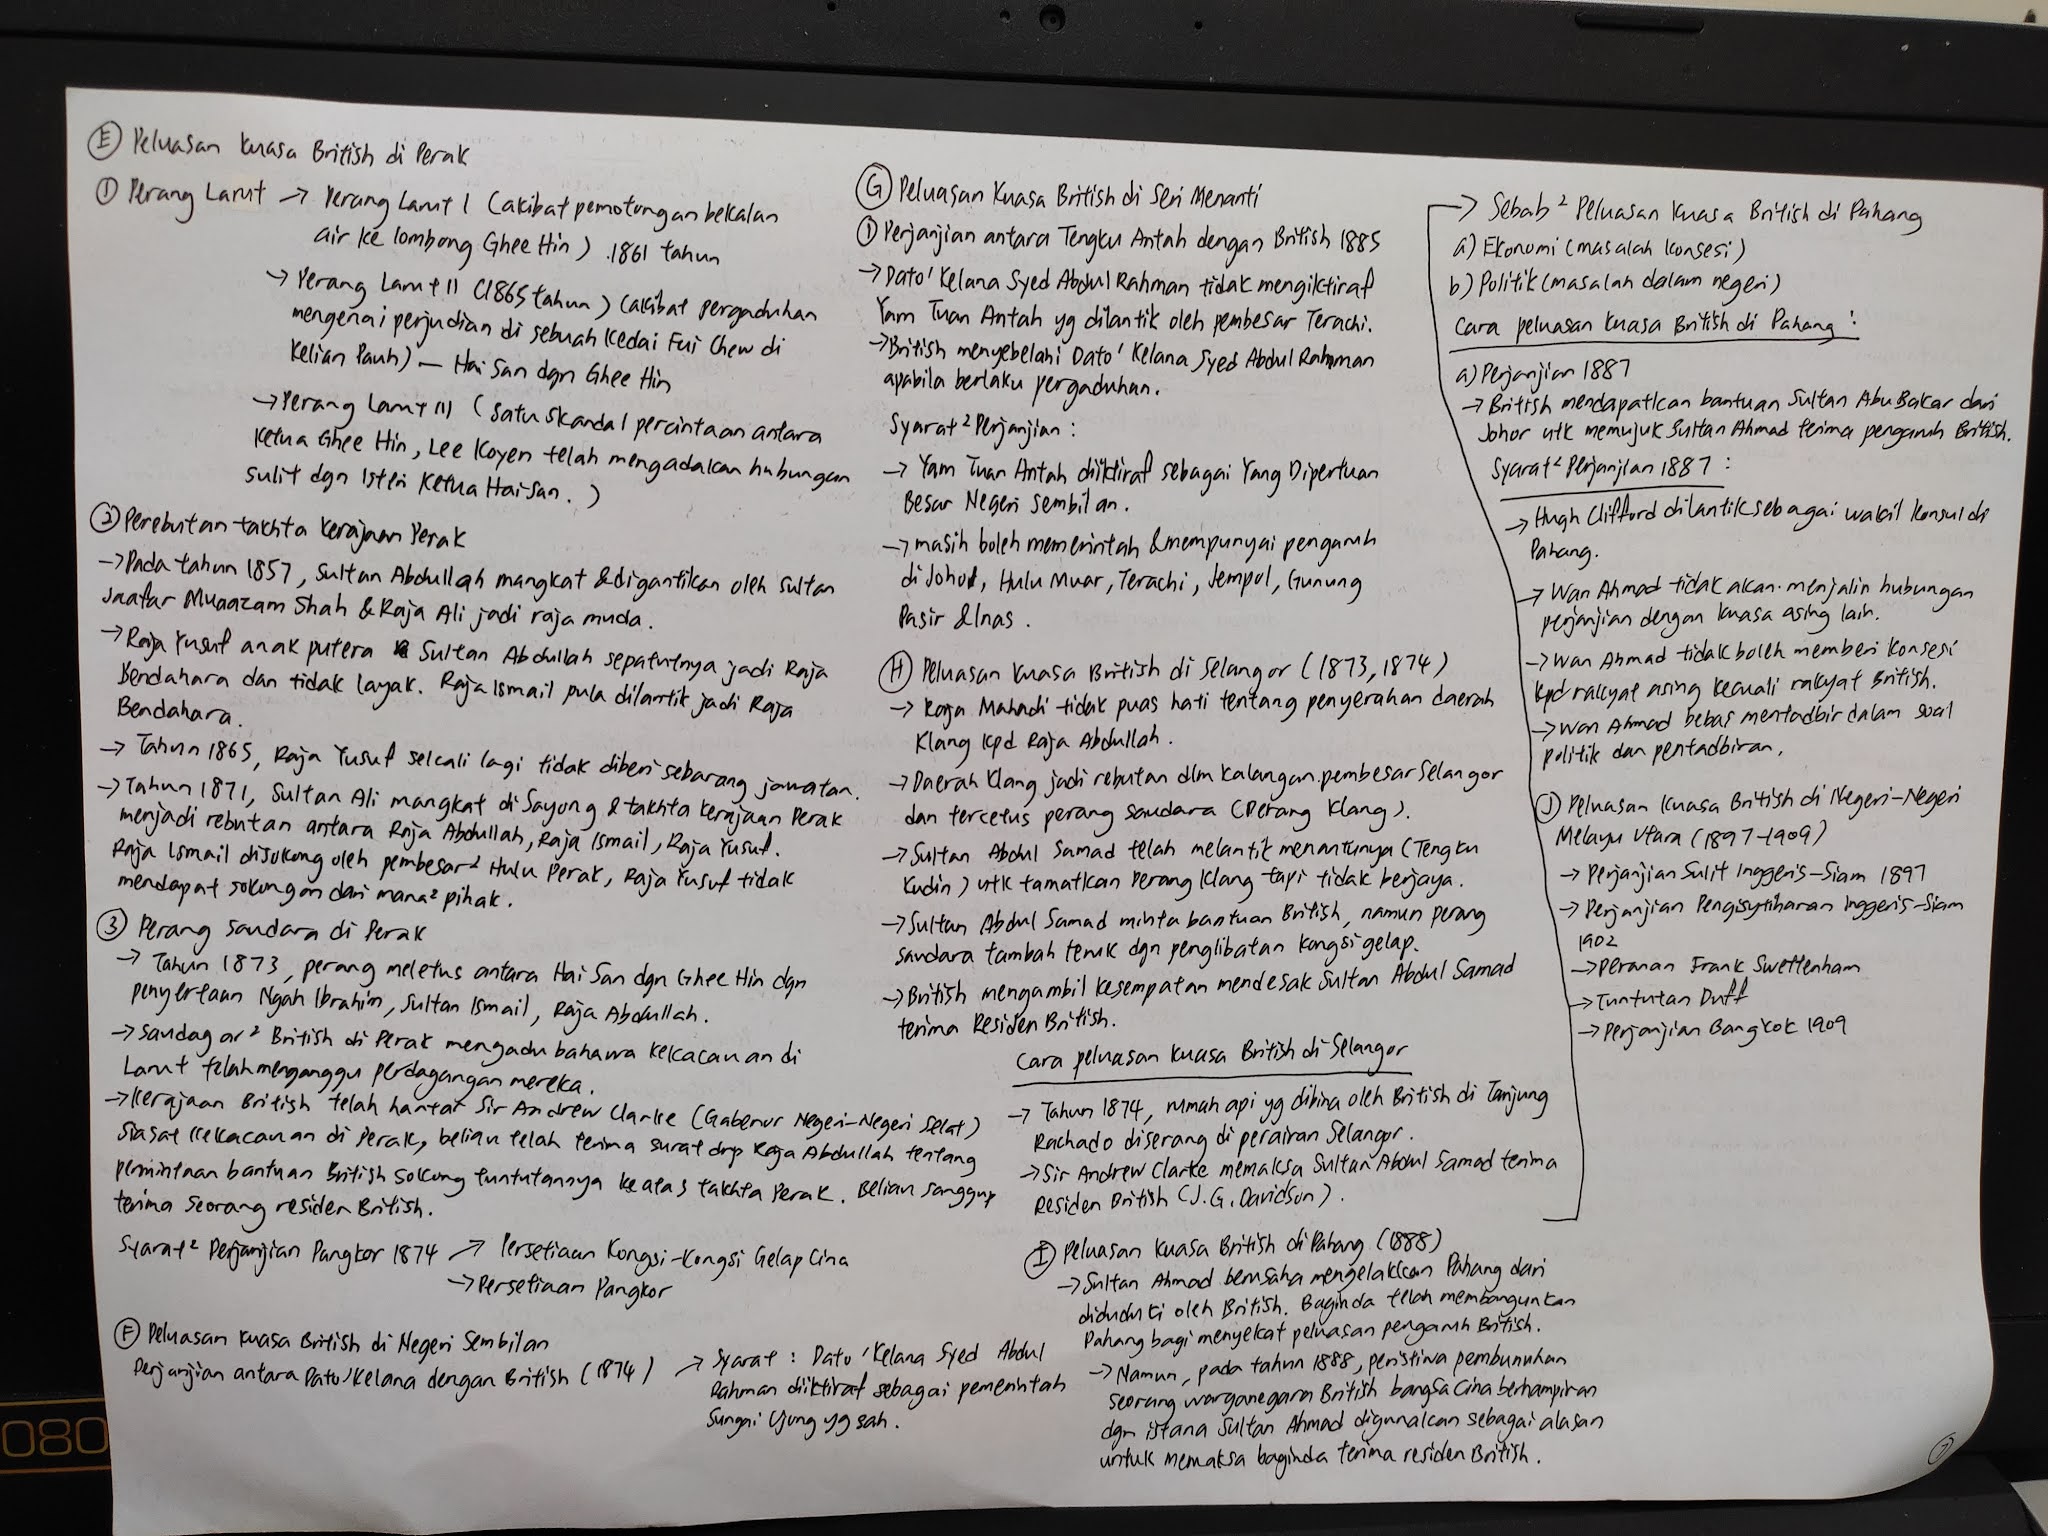 Ⓔ Peluasan kuasa British di Perak
① Perang Larut → Perang Larut I (akibat pemotongan bekalan
air ke lombong Ghee Hin) .1861 tahun
→ Perang Larut II (1865 tahun) (akibat pergaduhan
mengenai perjudian di sebuah kedai Fui Chew di
Kelian Pauh) — Hai San dgn Ghee Hin
→ Perang Larut III (satu skandal percintaan antara
ketua Ghee Hin, Lee Koyen telah mengadakan hubungan
sulit dgn isteri ketua Hai San.)
② Perebutan takhta kerajaan Perak
→ Pada tahun 1857, Sultan Abdullah mangkat & digantikan oleh Sultan
Jaafar Muaazam Shah & Raja Ali jadi raja muda.
→ Raja Yusuf anak putera Sultan Abdullah sepatutnya jadi Raja
Bendahara dan tidak layak. Raja Ismail pula dilantik jadi Raja
Bendahara.
→ Tahun 1865, Raja Yusuf sekali lagi tidak diberi sebarang jawatan.
→ Tahun 1871, Sultan Ali mangkat di Sayong & takhta kerajaan Perak
menjadi rebutan antara Raja Abdullah, Raja Ismail, Raja Yusuf.
Raja Ismail disokong oleh pembesar² Hulu Perak, Raja Yusuf tidak
mendapat sokongan dari mana² pihak.
③ Perang saudara di Perak
→ Tahun 1873, perang meletus antara Hai San dgn Ghee Hin dgn
penyertaan Ngah Ibrahim, Sultan Ismail, Raja Abdullah.
→ Saudagar² British di Perak mengadu bahawa kekacauan di
Larut telah menganggu perdagangan mereka.
→ Kerajaan British telah hantar Sir Andrew Clarke (Gabenor Negeri-Negeri Selat)
siasat kekacauan di Perak, beliau telah terima surat drp Raja Abdullah tentang
permintaan bantuan British sokong tuntutannya ke atas takhta Perak. Beliau sanggup
terima seorang residen British.
Syarat² Perjanjian Pangkor 1874 → Persetiaan Kongsi-Kongsi Gelap Cina
→ Persetiaan Pangkor
Ⓕ Peluasan kuasa British di Negeri Sembilan
Perjanjian antara Dato' Kelana dengan British (1874) → Syarat : Dato' Kelana Syed Abdul
Rahman diiktiraf sebagai pemerintah
Sungai Ujong yg sah.
Ⓖ Peluasan Kuasa British di Seri Menanti
① Perjanjian antara Tengku Antah dengan British 1885
→ Dato' Kelana Syed Abdul Rahman tidak mengiktiraf
Yam Tuan Antah yg dilantik oleh pembesar Terachi.
→ British menyebelahi Dato' Kelana Syed Abdul Rahman
apabila berlaku pergaduhan.
Syarat² Perjanjian :
→ Yam Tuan Antah diiktiraf sebagai Yang Dipertuan
Besar Negeri Sembilan.
→ masih boleh memerintah & mempunyai pengaruh
di Johol, Hulu Muar, Terachi, Jempol, Gunung
Pasir & Inas.
Ⓗ Peluasan kuasa British di Selangor (1873, 1874)
→ Raja Mahadi tidak puas hati tentang penyerahan daerah
Klang kpd Raja Abdullah.
→ Daerah Klang jadi rebutan dlm kalangan pembesar Selangor
dan tercetus perang saudara (Perang Klang).
→ Sultan Abdul Samad telah melantik menantunya (Tengku
Kudin) utk tamatkan Perang Klang tapi tidak berjaya.
→ Sultan Abdul Samad minta bantuan British, namun perang
saudara tambah teruk dgn penglibatan kongsi gelap.
→ British mengambil kesempatan mendesak Sultan Abdul Samad
terima Residen British.
Cara peluasan kuasa British di Selangor
→ Tahun 1874, rumah api yg dibina oleh British di Tanjung
Rachado diserang di perairan Selangor.
→ Sir Andrew Clarke memaksa Sultan Abdul Samad terima
Residen British (J.G. Davidson).
Ⓘ Peluasan kuasa British di Pahang (1888)
→ Sultan Ahmad berusaha mengelakkan Pahang dari
diduduki oleh British. Baginda telah membangunkan
Pahang bagi menyekat peluasan pengaruh British.
→ Namun, pada tahun 1888, peristiwa pembunuhan
seorang warganegara British bangsa Cina berhampiran
dgn istana Sultan Ahmad digunakan sebagai alasan
untuk memaksa baginda terima residen British.
→ Sebab² Peluasan kuasa British di Pahang
a) Ekonomi (masalah konsesi)
b) Politik (masalah dalam negeri)
Cara peluasan kuasa British di Pahang :
a) Perjanjian 1887
→ British mendapatkan bantuan Sultan Abu Bakar dari
Johor utk memujuk Sultan Ahmad terima pengaruh British.
Syarat² Perjanjian 1887 :
→ Hugh Clifford dilantik sebagai wakil konsul di
Pahang.
→ Wan Ahmad tidak akan menjalin hubungan
perjanjian dengan kuasa asing lain.
→ Wan Ahmad tidak boleh memberi konsesi
kpd rakyat asing kecuali rakyat British.
→ Wan Ahmad bebas mentadbir dalam soal
politik dan pentadbiran.
Ⓙ Peluasan kuasa British di Negeri-Negeri
Melayu Utara (1897-1909)
→ Perjanjian Sulit Inggeris-Siam 1897
→ Perjanjian Pengisytiharan Inggeris-Siam
1902
→ Peranan Frank Swettenham
→ Tuntutan Duff
→ Perjanjian Bangkok 1909
⑦
080